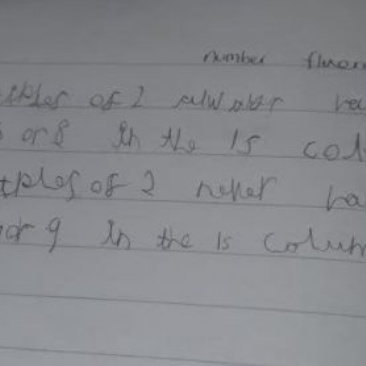 number fluen
tiples of 2 alwaer ha
6 or 8 in the 1s col
tples of 2 neher ha
or 9 in the 1s colum